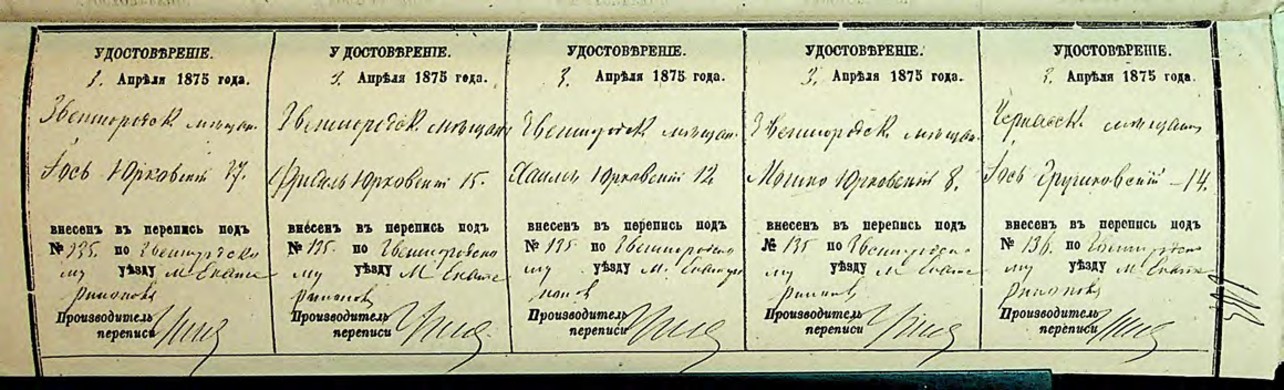 УДОСТОВѢРЕНІЕ.
3. Апрѣля 1875 года.
Звенигородск. мѣщан.
Іось Юрковскій 27.
внесенъ въ перепись подъ
№ 135. по Звенигородско
му уѣзду М. Екате
ринополь
Производитель
переписи
УДОСТОВѢРЕНІЕ.
3. Апрѣля 1875 года.
Звенигородск. мѣщан
Юрковскій 15.
внесенъ въ перепись подъ
№ 135. по Звенигородско
му уѣзду М Екате
ринополь
Производитель
переписи
УДОСТОВѢРЕНІЕ.
3. Апрѣля 1875 года.
Звенигородск мѣщан.
Юрковскій 12.
внесенъ въ перепись подъ
№ 135. по Звенигородско
му уѣзду М.
Производитель
переписи
УДОСТОВѢРЕНІЕ.
3. Апрѣля 1875 года.
Звенигородск мѣщан.
Мошко Юрковскій 8.
внесенъ въ перепись подъ
№ 135 по Звенигородско
му уѣзду М Екате
ринополь
Производитель
переписи
УДОСТОВѢРЕНІЕ.
3. Апрѣля 1875 года.
Черкасск. мѣщанин
Іось Грушковскій - 14.
внесенъ въ перепись подъ
№ 136. по Звенигородско
му уѣзду М Екате
ринополь
Производитель
переписи